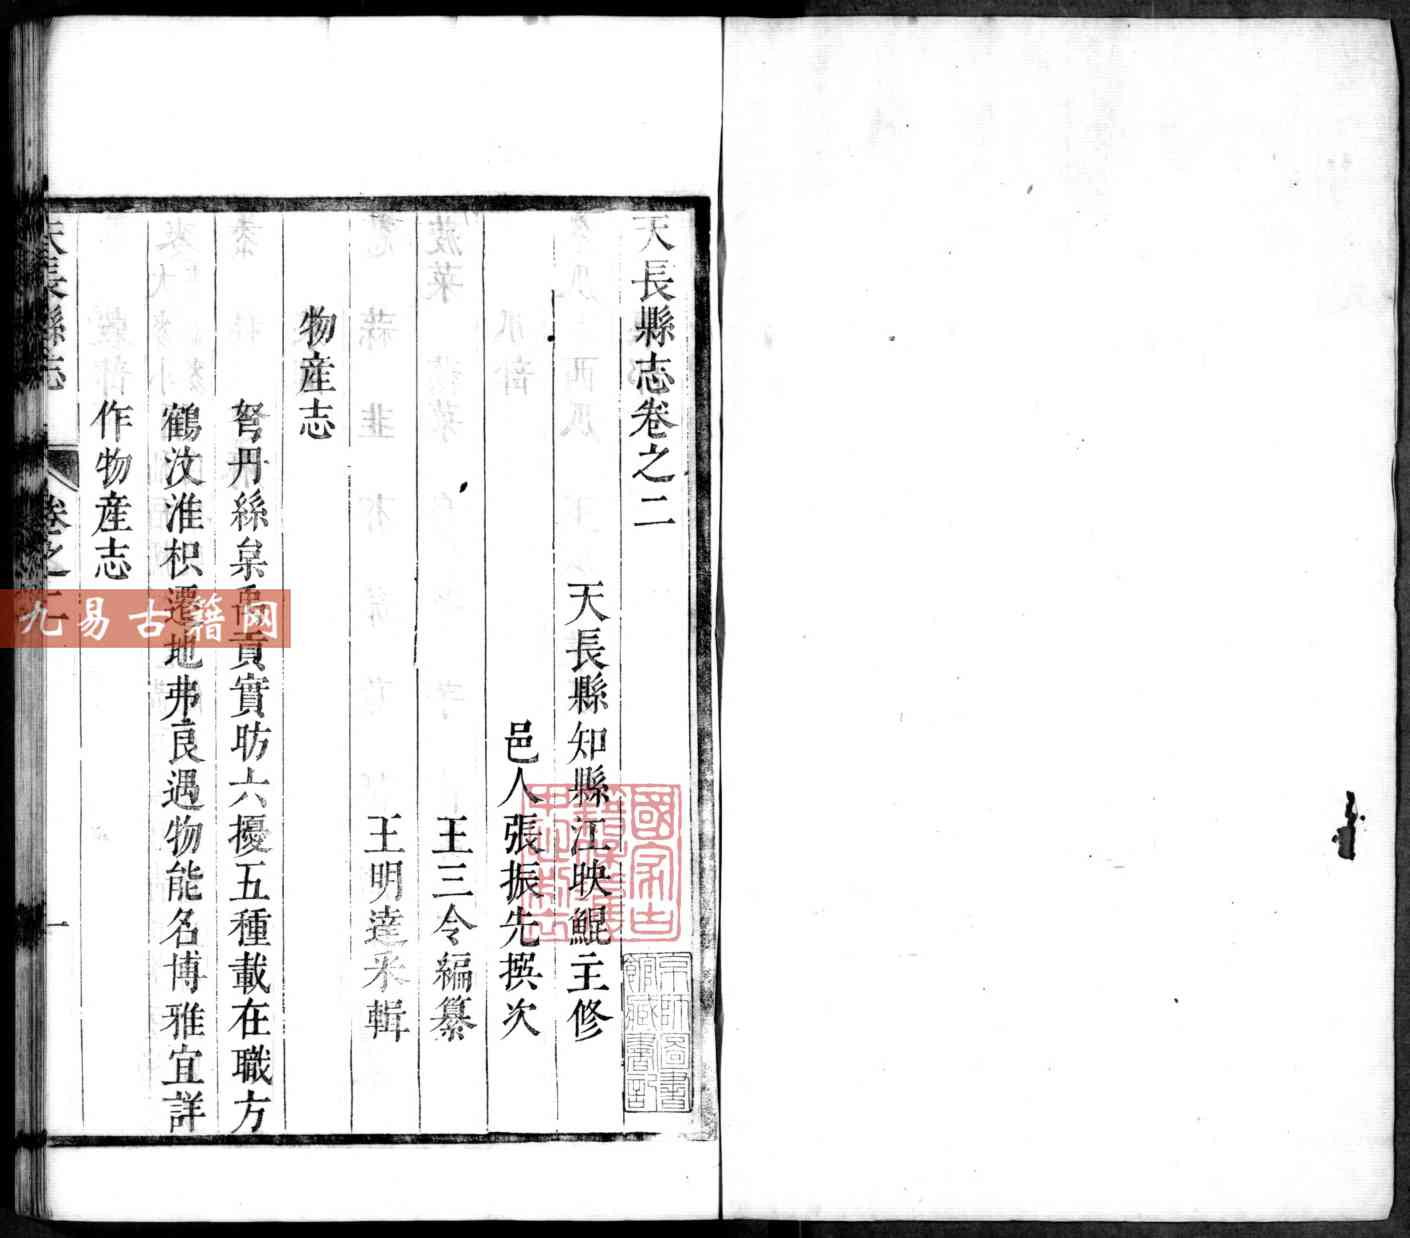 天長縣志卷之二
天長縣知縣江映鯤主修
邑人張振先撰次
王三令編纂
王明達采輯
物産志
砮丹絲枲禹貢實昉六擾五種載在職方
鶴汶淮枳遷地弗良遇物能名博雅宜詳
作物産志
天長縣志
卷之二
一
九易古籍网
京師圖書
館藏書記